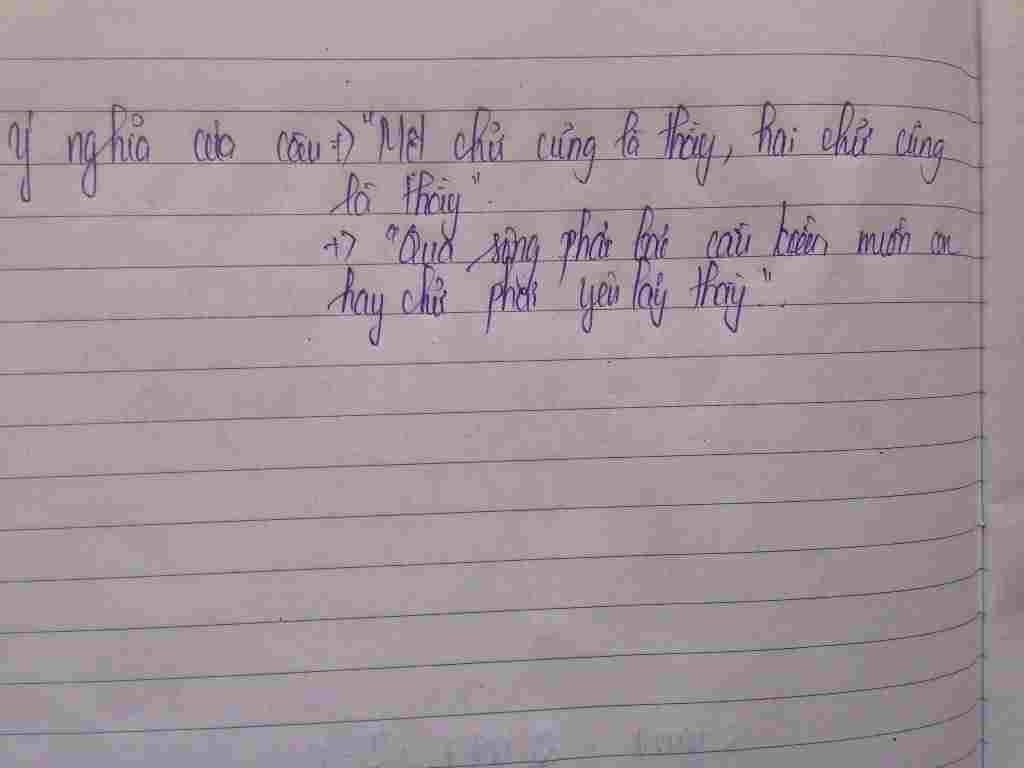 Ý nghĩa của câu +) "Một chữ cũng là thầy, hai chữ cũng
là thầy".
+) "Qua sông phải bắc cầu kiều, muốn con
hay chữ phải yêu lấy thầy".